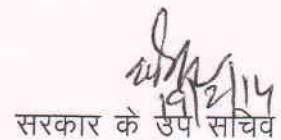 19/2/14
सरकार के उप सचिव